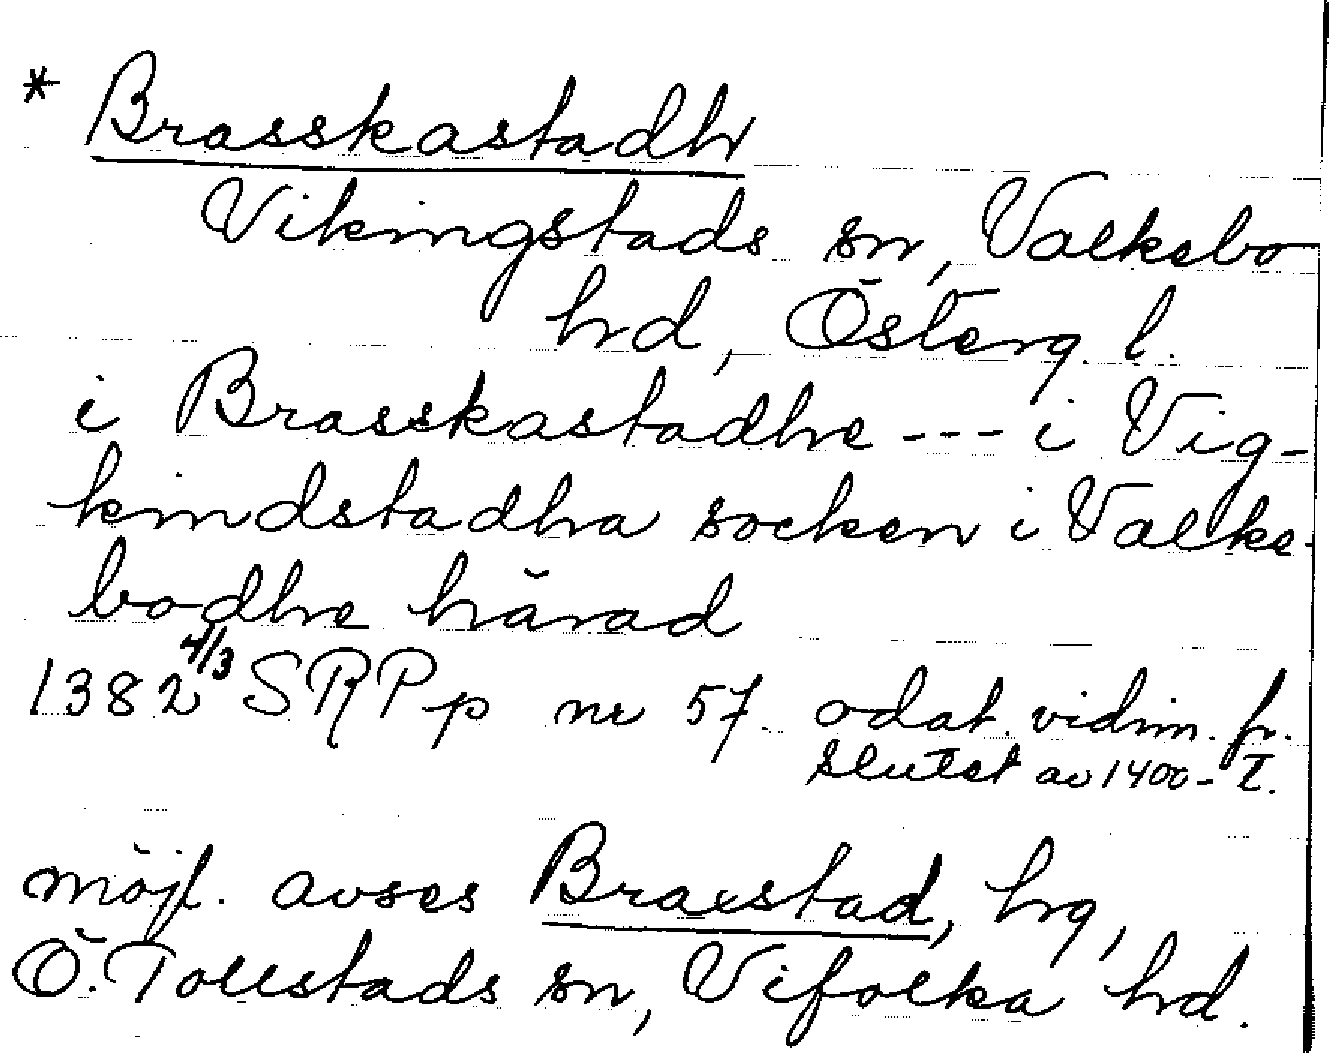 * Brasskastadhr
Vikingstads sn, Valkebo
hd, Österg. l.
i Brasskastadhe --- i Vig-
kindstadha socken i Valke-
bodhe härad
1382 4/3 SRPp nr 57 odat. vidim. fr.
slutet av 1400-t.
möjl. avses Braxstad, hg,
Ö. Tollstads sn, Vifolka hd.